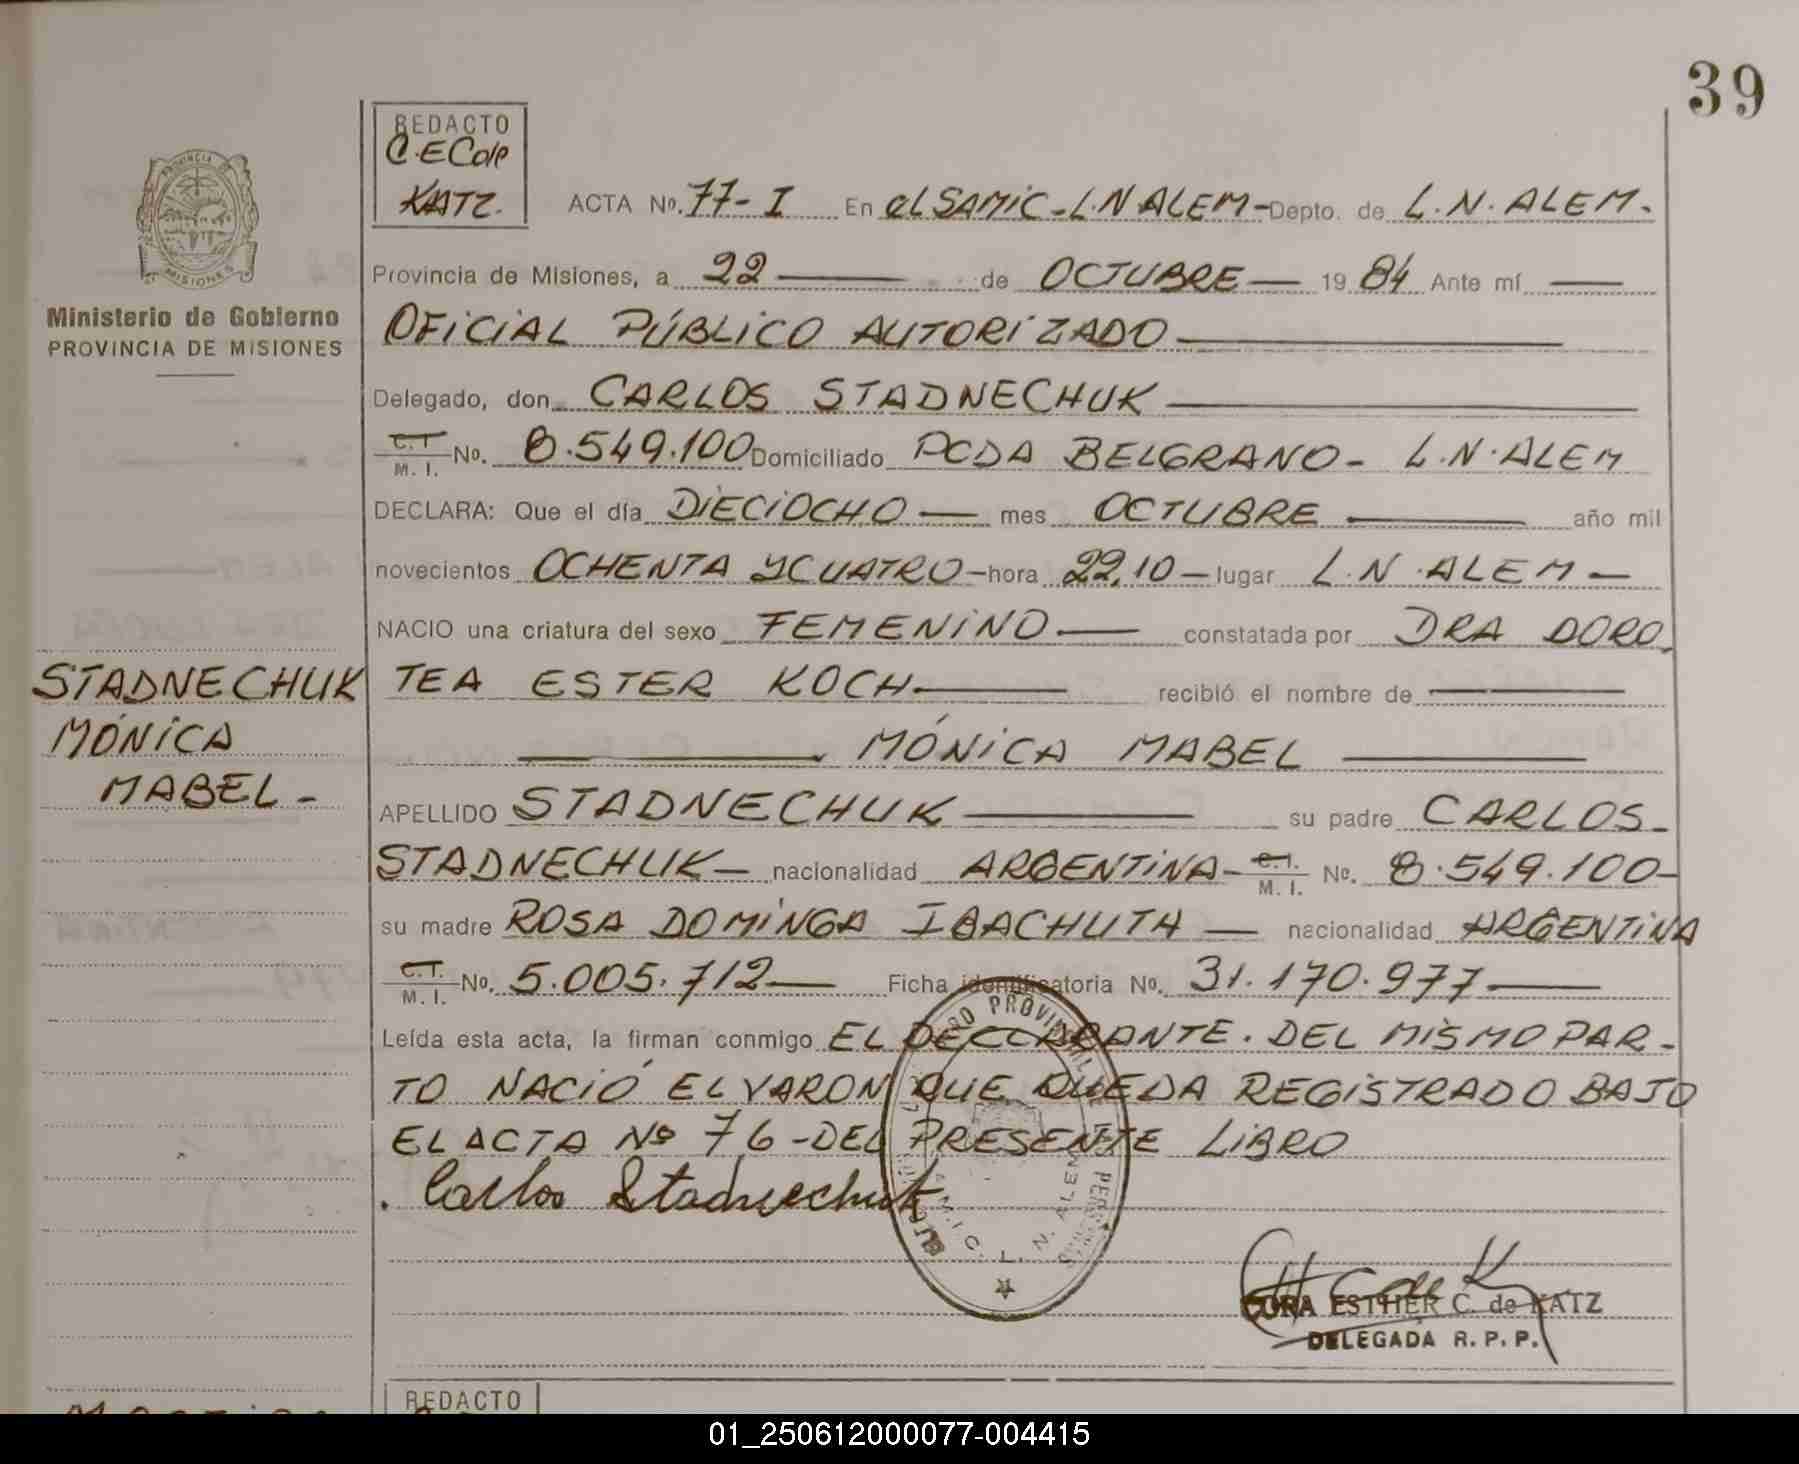 39
REDACTO
C.E.C de
KATZ.
ACTA No. 77-I En el SAMIC-L N ALEM-Depto. de L.N. ALEM.
PROVINCIA DE
MISIONES
Provincia de Misiones, a 22 — de OCTUBRE — 19 84 Ante mí —
Ministerio de Gobierno
PROVINCIA DE MISIONES
OFICIAL PÚBLICO AUTORIZADO —
Delegado, don CARLOS STADNECHUK —
C.I. M. I. No. 8.549.100 Domiciliado PCDA BELGRANO - L.N. ALEM
DECLARA: Que el día DIECIOCHO — mes OCTUBRE — año mil
novecientos OCHENTA Y CUATRO - hora 22,10 - lugar L.N. ALEM —
NACIO una criatura del sexo FEMENINO — constatada por DRA DORO-
TEA ESTER KOCH — recibió el nombre de —
STADNECHUK
MÓNICA
MABEL -
— MÓNICA MABEL —
APELLIDO STADNECHUK — su padre CARLOS-
STADNECHUK — nacionalidad ARGENTINA - C.I. M. I. No. 8.549.100 -
su madre ROSA DOMINGA IBACHUTA — nacionalidad ARGENTINA
C.I. M. I. No. 5.005.712 — Ficha identificatoria No. 31.170.977 —
Leída esta acta, la firman conmigo EL DECLARANTE. DEL MISMO PAR-
TO NACIÓ EL VARON QUE QUEDA REGISTRADO BAJO
EL ACTA Nº 76 - DEL PRESENTE LIBRO
. Carlos Stadnechuk
PROVINCIAL DE LAS PERSONAS
L. N. ALEM
CORA ESTHER C. de KATZ
DELEGADA R. P. P.
REDACTO
01_250612000077-004415